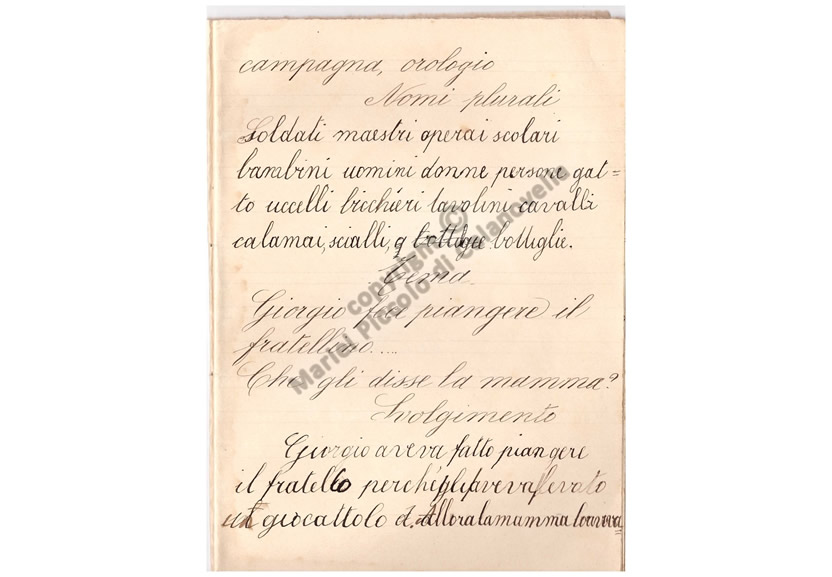 campagna, orologio
Nomi plurali
Soldati maestri operai scolari
bambini uomini donne persone gat=
to uccelli bicchieri tavolini cavalli
calamai, scialli, bottiglie.
Tema
Giorgio fa piangere il
fratellino.....
Che gli disse la mamma?
Svolgimento
Giorgio aveva fatto piangere
il fratello perché gli aveva levato
un giocattolo Allora la mamma
copyright ©
Mariel Piccolo di Calanovella